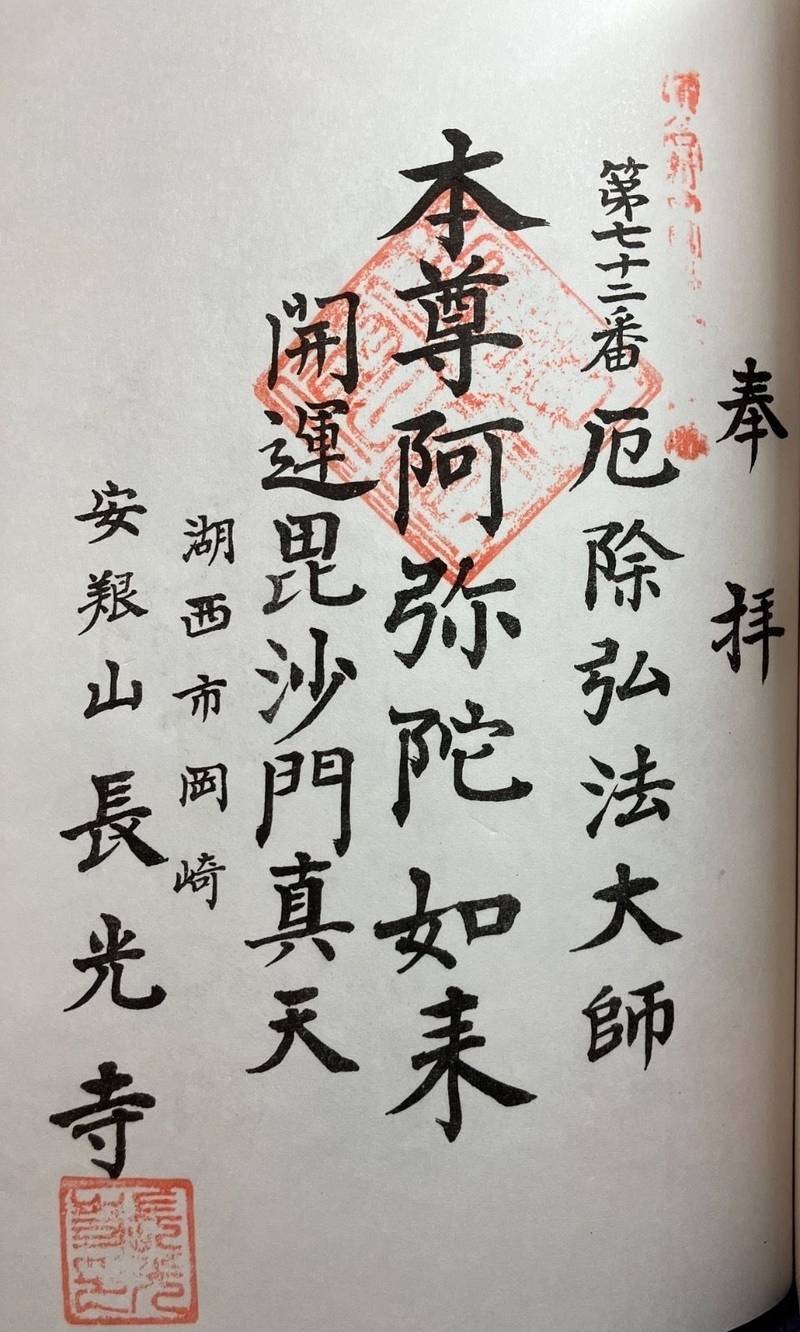 奉拝
第七十二番 厄除弘法大師
本尊阿弥陀如来
開運毘沙門真天
湖西市岡崎
安艱山 長光寺